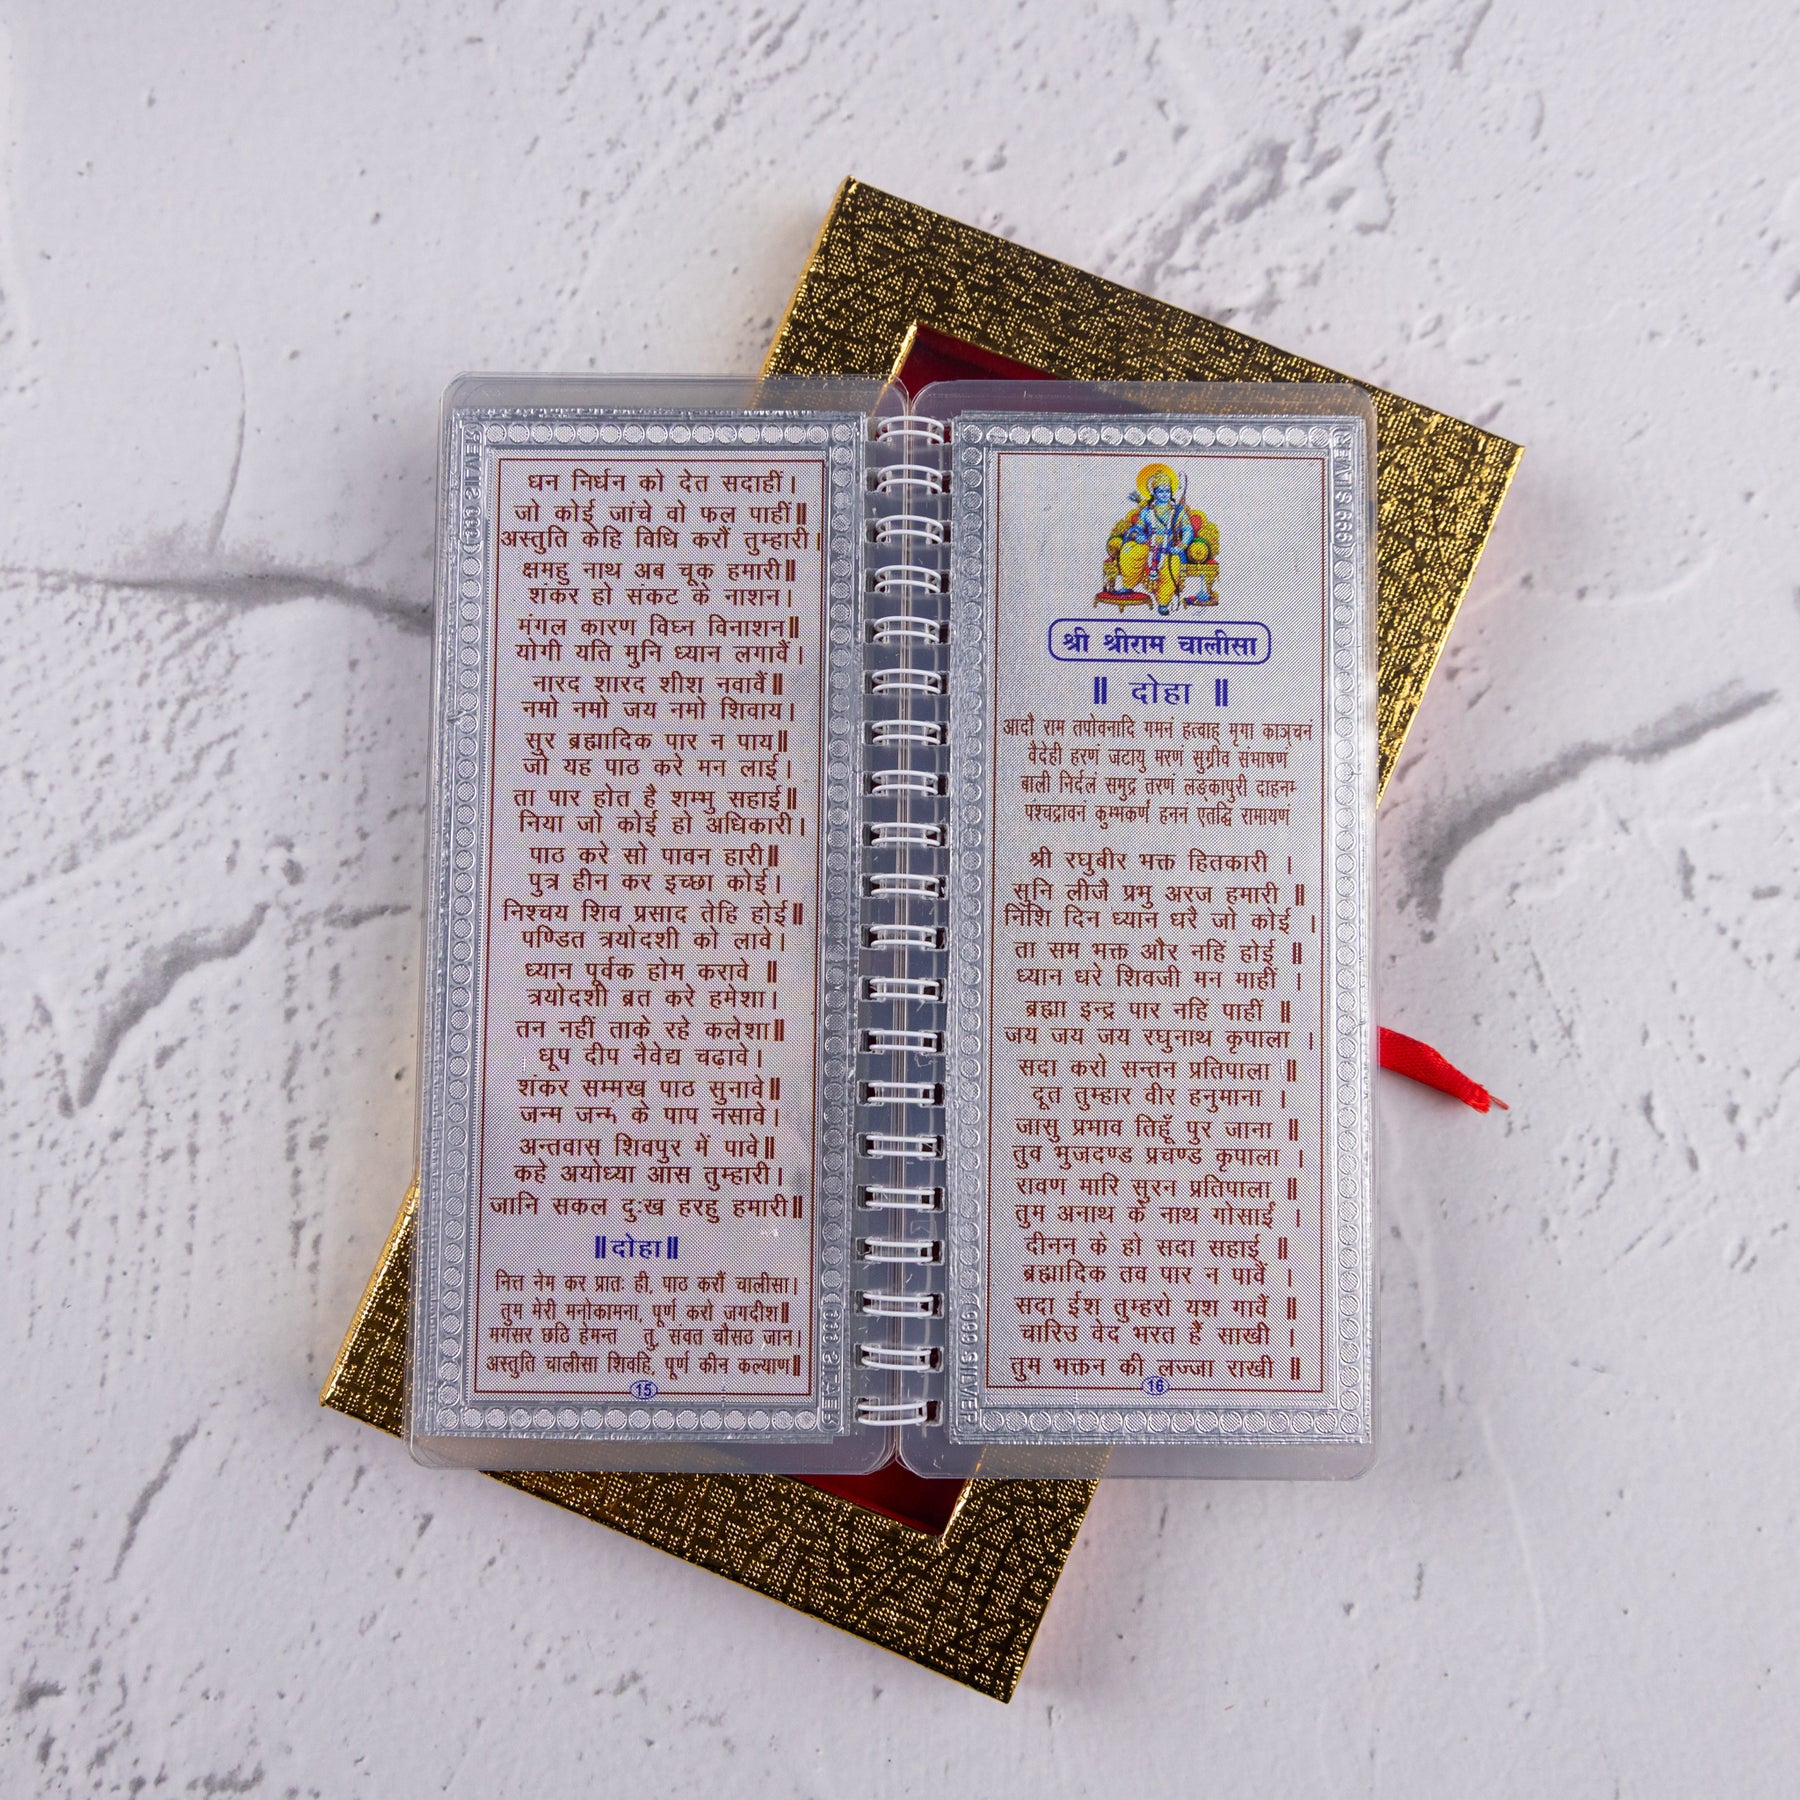 धन निर्धन को देत सदाहीं।
जो कोई जांचे वो फल पाहीं॥
अस्तुति केहि विधि करौं तुम्हारी।
क्षमहु नाथ अब चूक हमारी॥
शंकर हो संकट के नाशन।
मंगल कारण विघ्न विनाशन॥
योगी यति मुनि ध्यान लगावैं।
नारद शारद शीश नवावैं॥
नमो नमो जय नमो शिवाय।
सुर ब्रह्मादिक पार न पाय॥
जो यह पाठ करे मन लाई।
ता पार होत है शम्भु सहाई॥
निया जो कोई हो अधिकारी।
पाठ करे सो पावन हारी॥
पुत्र हीन कर इच्छा कोई।
निश्चय शिव प्रसाद तेहि होई॥
पण्डित त्रयोदशी को लावे।
ध्यान पूर्वक होम करावे ॥
त्रयोदशी ब्रत करे हमेशा।
तन नहीं ताके रहे कलेशा॥
धूप दीप नैवेद्य चढ़ावे।
शंकर सम्मख पाठ सुनावे॥
जन्म जन्म के पाप नसावे।
अन्तवास शिवपुर में पावे॥
कहे अयोध्या आस तुम्हारी।
जानि सकल दुःख हरहु हमारी॥
॥दोहा॥
नित्त नेम कर प्रातः ही, पाठ करौं चालीसा।
तुम मेरी मनोकामना, पूर्ण करो जगदीश॥
मगसर छठि हेमन्त तु, सवत चौसठ जान।
अस्तुति चालीसा शिवहि, पूर्ण कीन कल्याण॥
15
999 SILVER
999 SILVER
श्री श्रीराम चालीसा
॥ दोहा ॥
आदौ राम तपोवनादि गमनं हत्वाह् मृगा काञ्चनं
वैदेही हरणं जटायु मरणं सुग्रीव संभाषणं
बाली निर्दलं समुद्र तरणं लङ्कापुरी दाहनम्
पश्चद्रावनं कुम्भकर्णं हननं एतद्धि रामायणं
श्री रघुबीर भक्त हितकारी ।
सुनि लीजै प्रभु अरज हमारी ॥
निशि दिन ध्यान धरै जो कोई ।
ता सम भक्त और नहिं होई ॥
ध्यान धरे शिवजी मन माहीं ।
ब्रह्मा इन्द्र पार नहिं पाहीं ॥
जय जय जय रघुनाथ कृपाला ।
सदा करो सन्तन प्रतिपाला ॥
दूत तुम्हार वीर हनुमाना ।
जासु प्रभाव तिहूँ पुर जाना ॥
तुव भुजदण्ड प्रचण्ड कृपाला ।
रावण मारि सुरन प्रतिपाला ॥
तुम अनाथ के नाथ गोसाईं ।
दीनन के हो सदा सहाई ॥
ब्रह्मादिक तव पार न पावैं ।
सदा ईश तुम्हरो यश गावैं ॥
चारिउ वेद भरत हैं साखी ।
तुम भक्तन की लज्जा राखी ॥
16
999 SILVER
999 SILVER